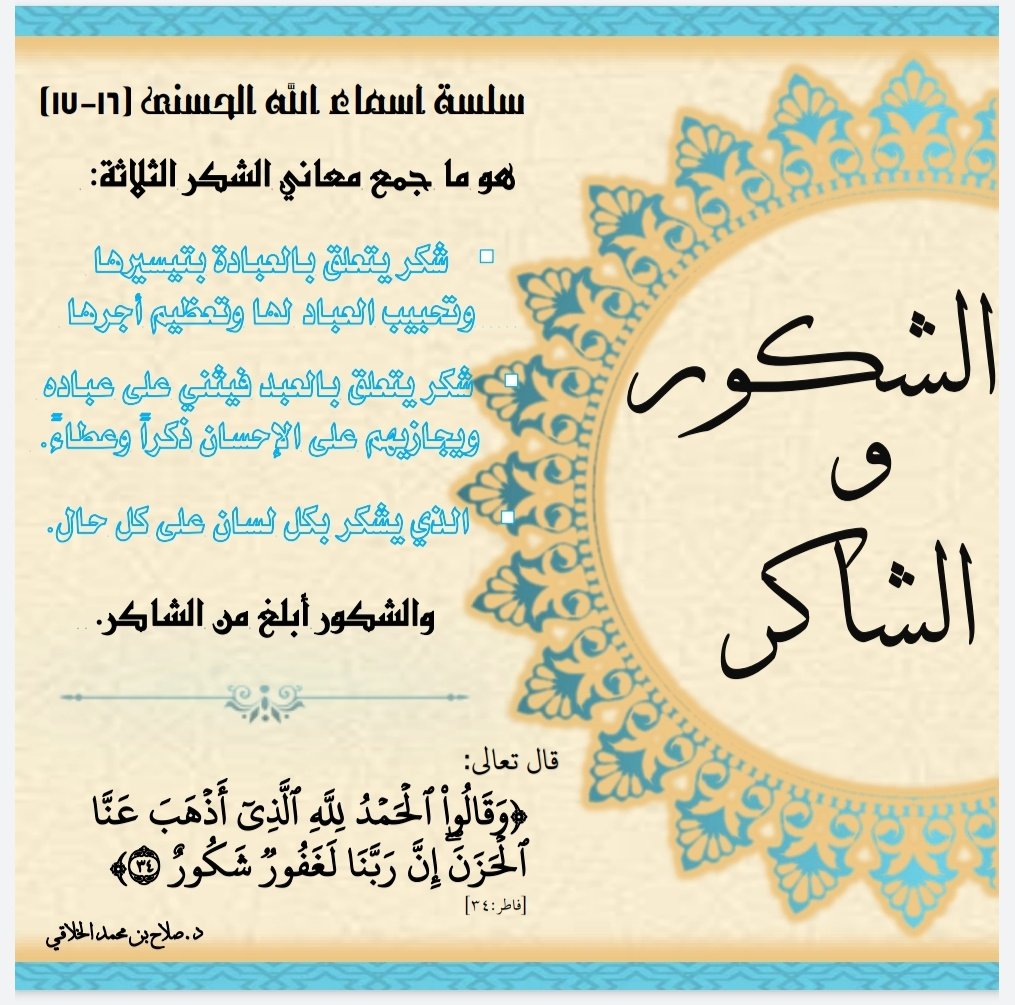 سلسة اسماء الله الحسنى (١٦-١٧)
هو ما جمع معاني الشكر الثلاثة:
▫ شكر يتعلق بالعبادة بتيسيرها
وتحبيب العباد لها وتعظيم أجرها
▫ شكر يتعلق بالعبد فيثني على عباده
ويجازيهم على الإحسان ذكراً وعطاءً.
▫ الذي يشكر بكل لسان على كل حال.
والشكور أبلغ من الشاكر.
الشكور
و
الشاكر
قال تعالى:
﴿وَقَالُواْ ٱلۡحَمۡدُ لِلَّهِ ٱلَّذِيٓ أَذۡهَبَ عَنَّا
ٱلۡحَزَنَۖ إِنَّ رَبَّنَا لَغَفُورٞ شَكُورٌ ٣٤﴾
[فاطر:٣٤]
د.صلاح بن محمد الخلاقي